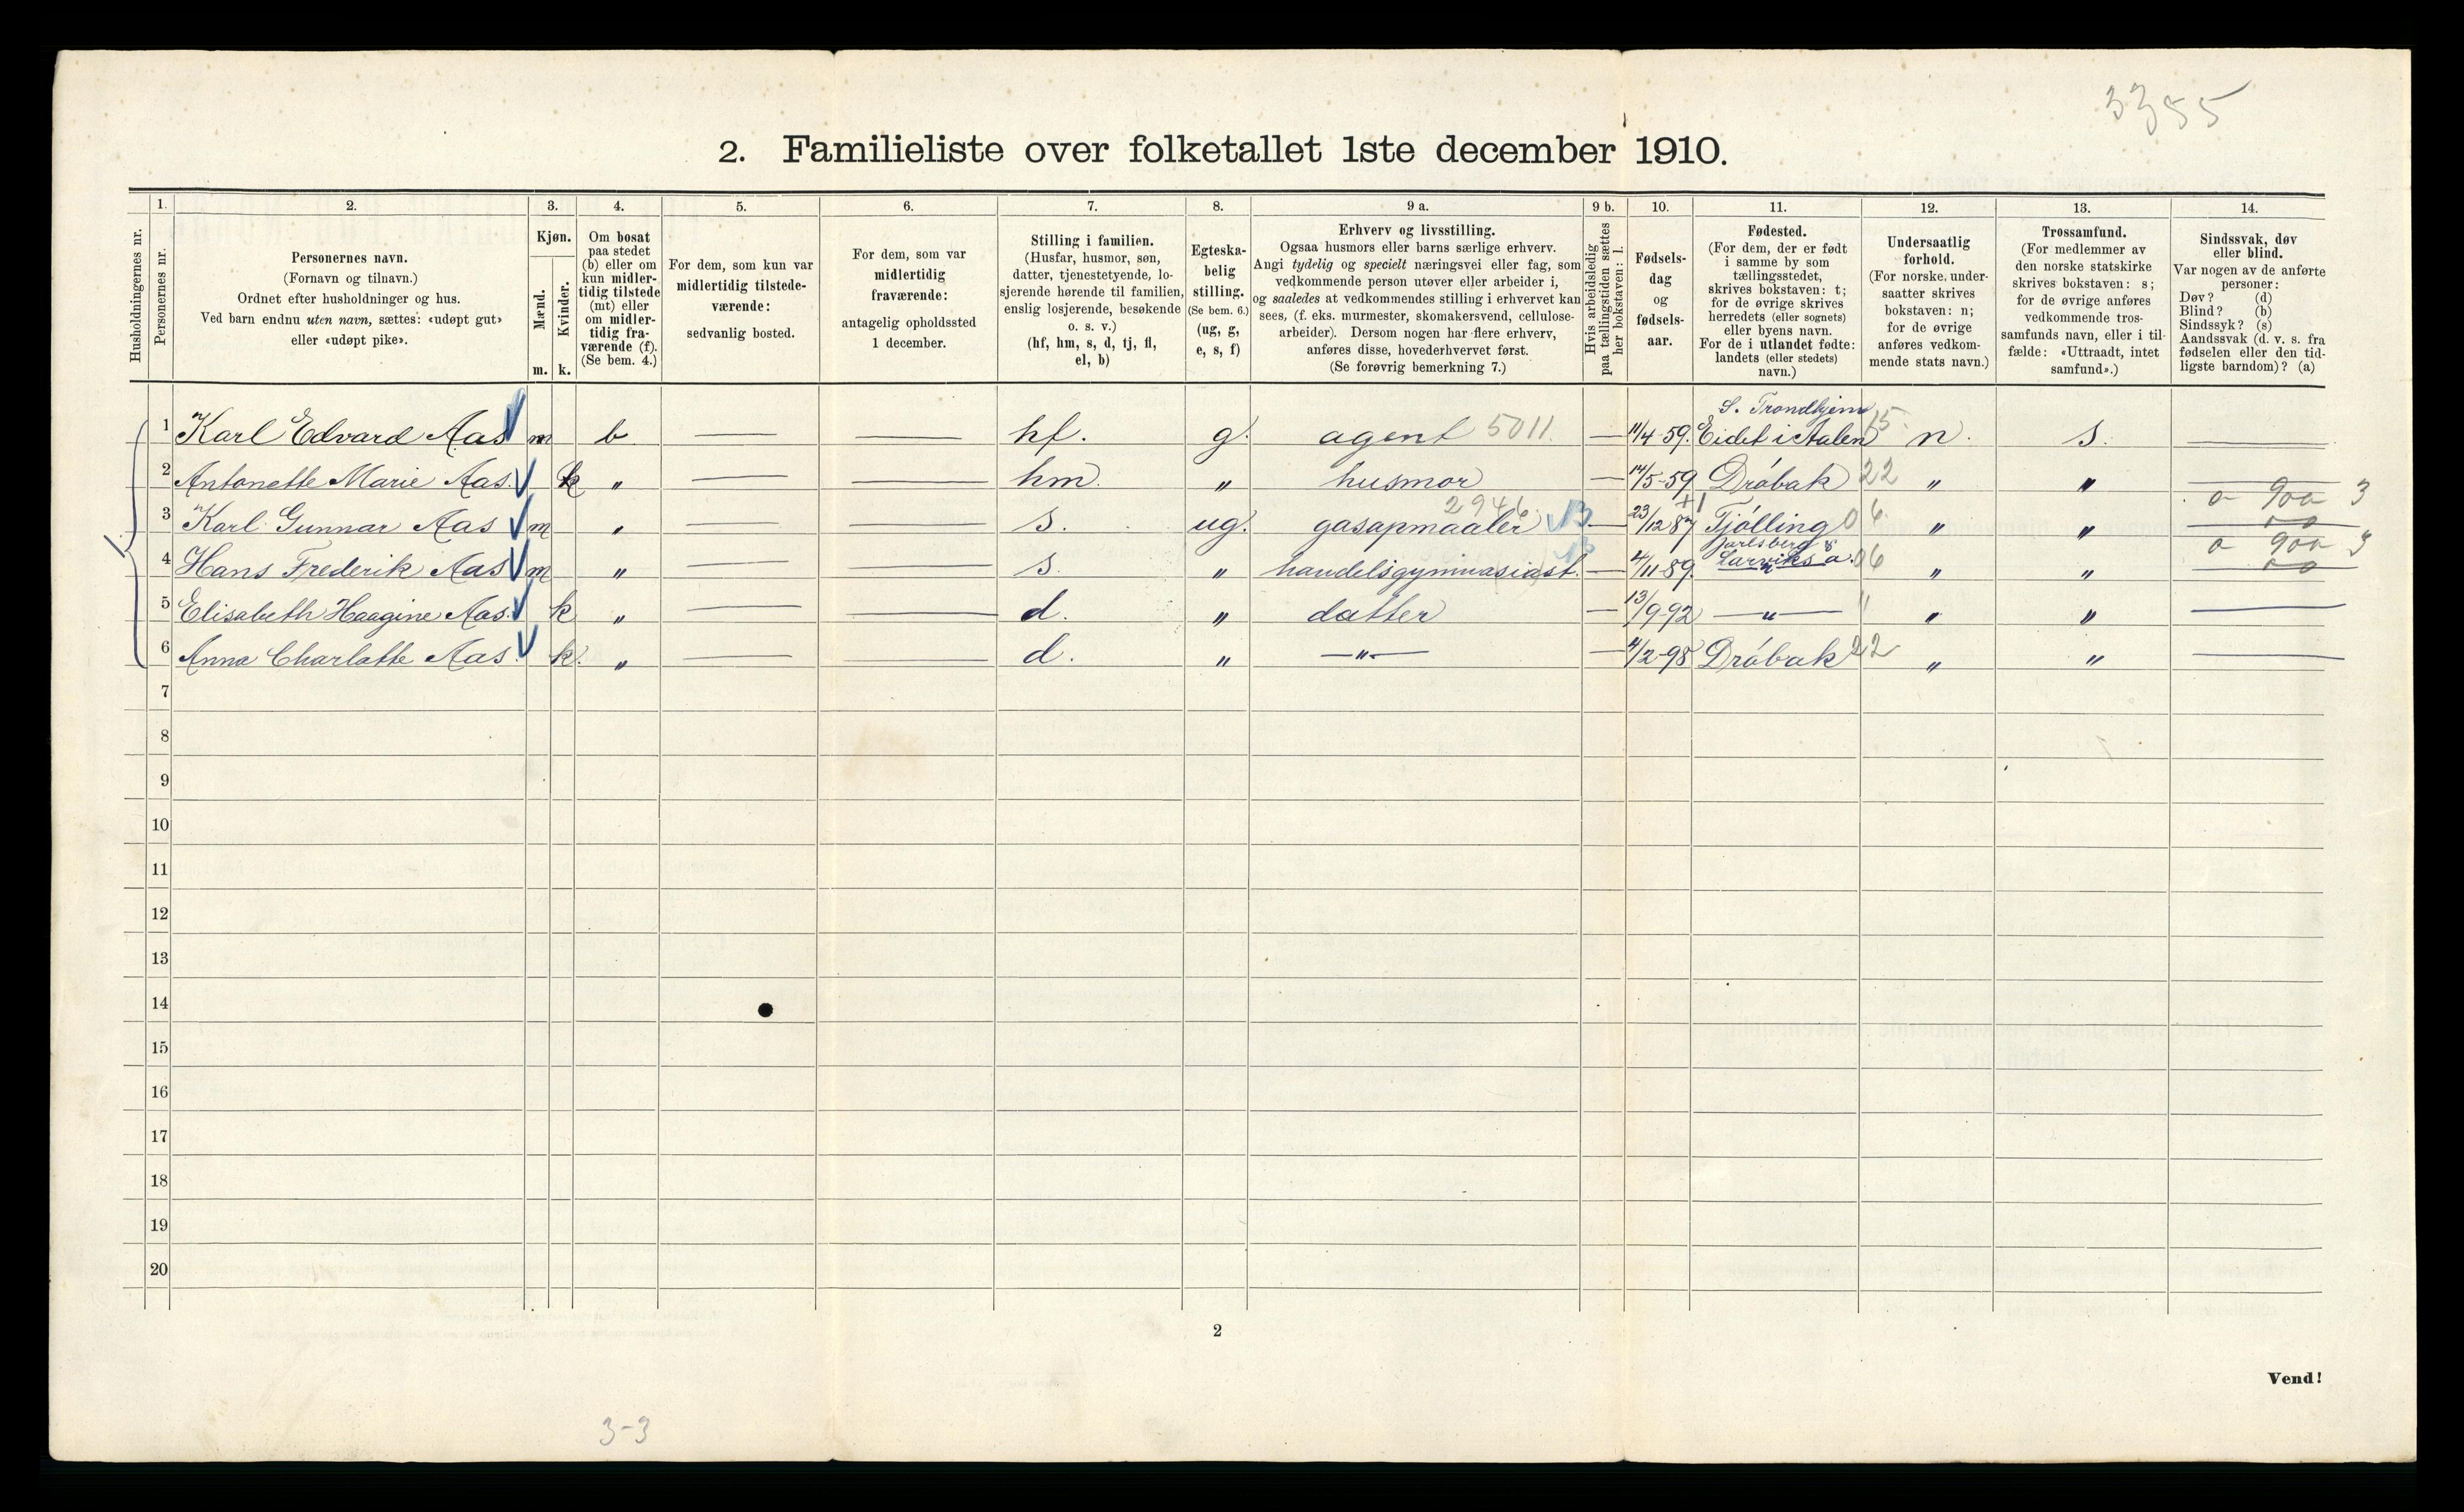 3355
2. Familieliste over folketallet 1ste december 1910.
Husholdningernes nr.
1.
Personernes nr.
2.
Personernes navn.
(Fornavn og tilnavn.)
Ordnet efter husholdninger og hus.
Ved barn endnu uten navn, sættes: «udøpt gut»
eller «udøpt pike».
3.
Kjøn.
Mænd.
Kvinder.
m. k.
4.
Om bosat
paa stedet
(b) eller om
kun midler-
tidig tilstede
(mt) eller
om midler-
tidig fra-
værende (f).
(Se bem. 4.)
5.
For dem, som kun var
midlertidig tilstede-
værende:
sedvanlig bosted.
6.
For dem, som var
midlertidig
fraværende:
antagelig opholdssted
1 december.
7.
Stilling i familien.
(Husfar, husmor, søn,
datter, tjenestetyende, lo-
sjerende hørende til familien,
enslig losjerende, besøkende
o. s. v.)
(hf, hm, s, d, tj, fl,
el, b)
8.
Egteska-
belig
stilling.
(Se bem. 6.)
(ug, g,
e, s, f)
9 a.
Erhverv og livsstilling.
Ogsaa husmors eller barns særlige erhverv.
Angi tydelig og specielt næringsvei eller fag, som
vedkommende person utøver eller arbeider i,
og saaledes at vedkommendes stilling i erhvervet kan
sees, (f. eks. murmester, skomakersvend, cellulose-
arbeider). Dersom nogen har flere erhverv,
anføres disse, hovederhvervet først.
(Se forøvrig bemerkning 7.)
9 b.
Hvis arbeidsledig
paa tællingstiden sættes
her bokstaven: l.
10.
Fødsels-
dag
og
fødsels-
aar.
11.
Fødested.
(For dem, der er født
i samme by som
tællingsstedet,
skrives bokstaven: t;
for de øvrige skrives
herredets (eller sognets)
eller byens navn.
For de i utlandet fødte:
landets (eller stedets)
navn.)
12.
Undersaatlig
forhold.
(For norske under-
saatter skrives
bokstaven: n;
for de øvrige
anføres vedkom-
mende stats navn.)
13.
Trossamfund.
(For medlemmer av
den norske statskirke
skrives bokstaven: s;
for de øvrige anføres
vedkommende tros-
samfunds navn, eller i til-
fælde: «Uttraadt, intet
samfund».)
14.
Sindssvak, døv
eller blind.
Var nogen av de anførte
personer:
Døv? (d)
Blind? (b)
Sindssyk? (s)
Aandssvak (d. v. s. fra
fødselen eller den tid-
ligste barndom)? (a)
S. Trondhjem
1. 1 Karl Edvard Aas m b — — hf. g. agent 5011 — 11/4-59. Eidet i Aalen 15 n. s. —
2 Antonette Marie Aas. k " — — hm. " husmor — 14/5-59 Drøbak 22 " " —
2946 +1 0 900 3
3 Karl Gunnar Aas m " — — s. ug. gasapmaaler 13 — 23/12 87 Tjølling 06 " " —
Jarlsberg & 0 900 3
4 Hans Frederik Aas m " — — s. " handelsgymnasiast. — 4/11-89. Larviks a. 06 " " —
5 Elisabeth Haagine Aas. k " — — d. " datter — 13/9-92 — " — " " " —
6 Anna Charlotte Aas. k. " — — d. " — " — — 4/2-98 Drøbak 22 " " —
7
8
9
10
11
12
13
14
15
16
17
18
19
20
2
Vend!
3-3